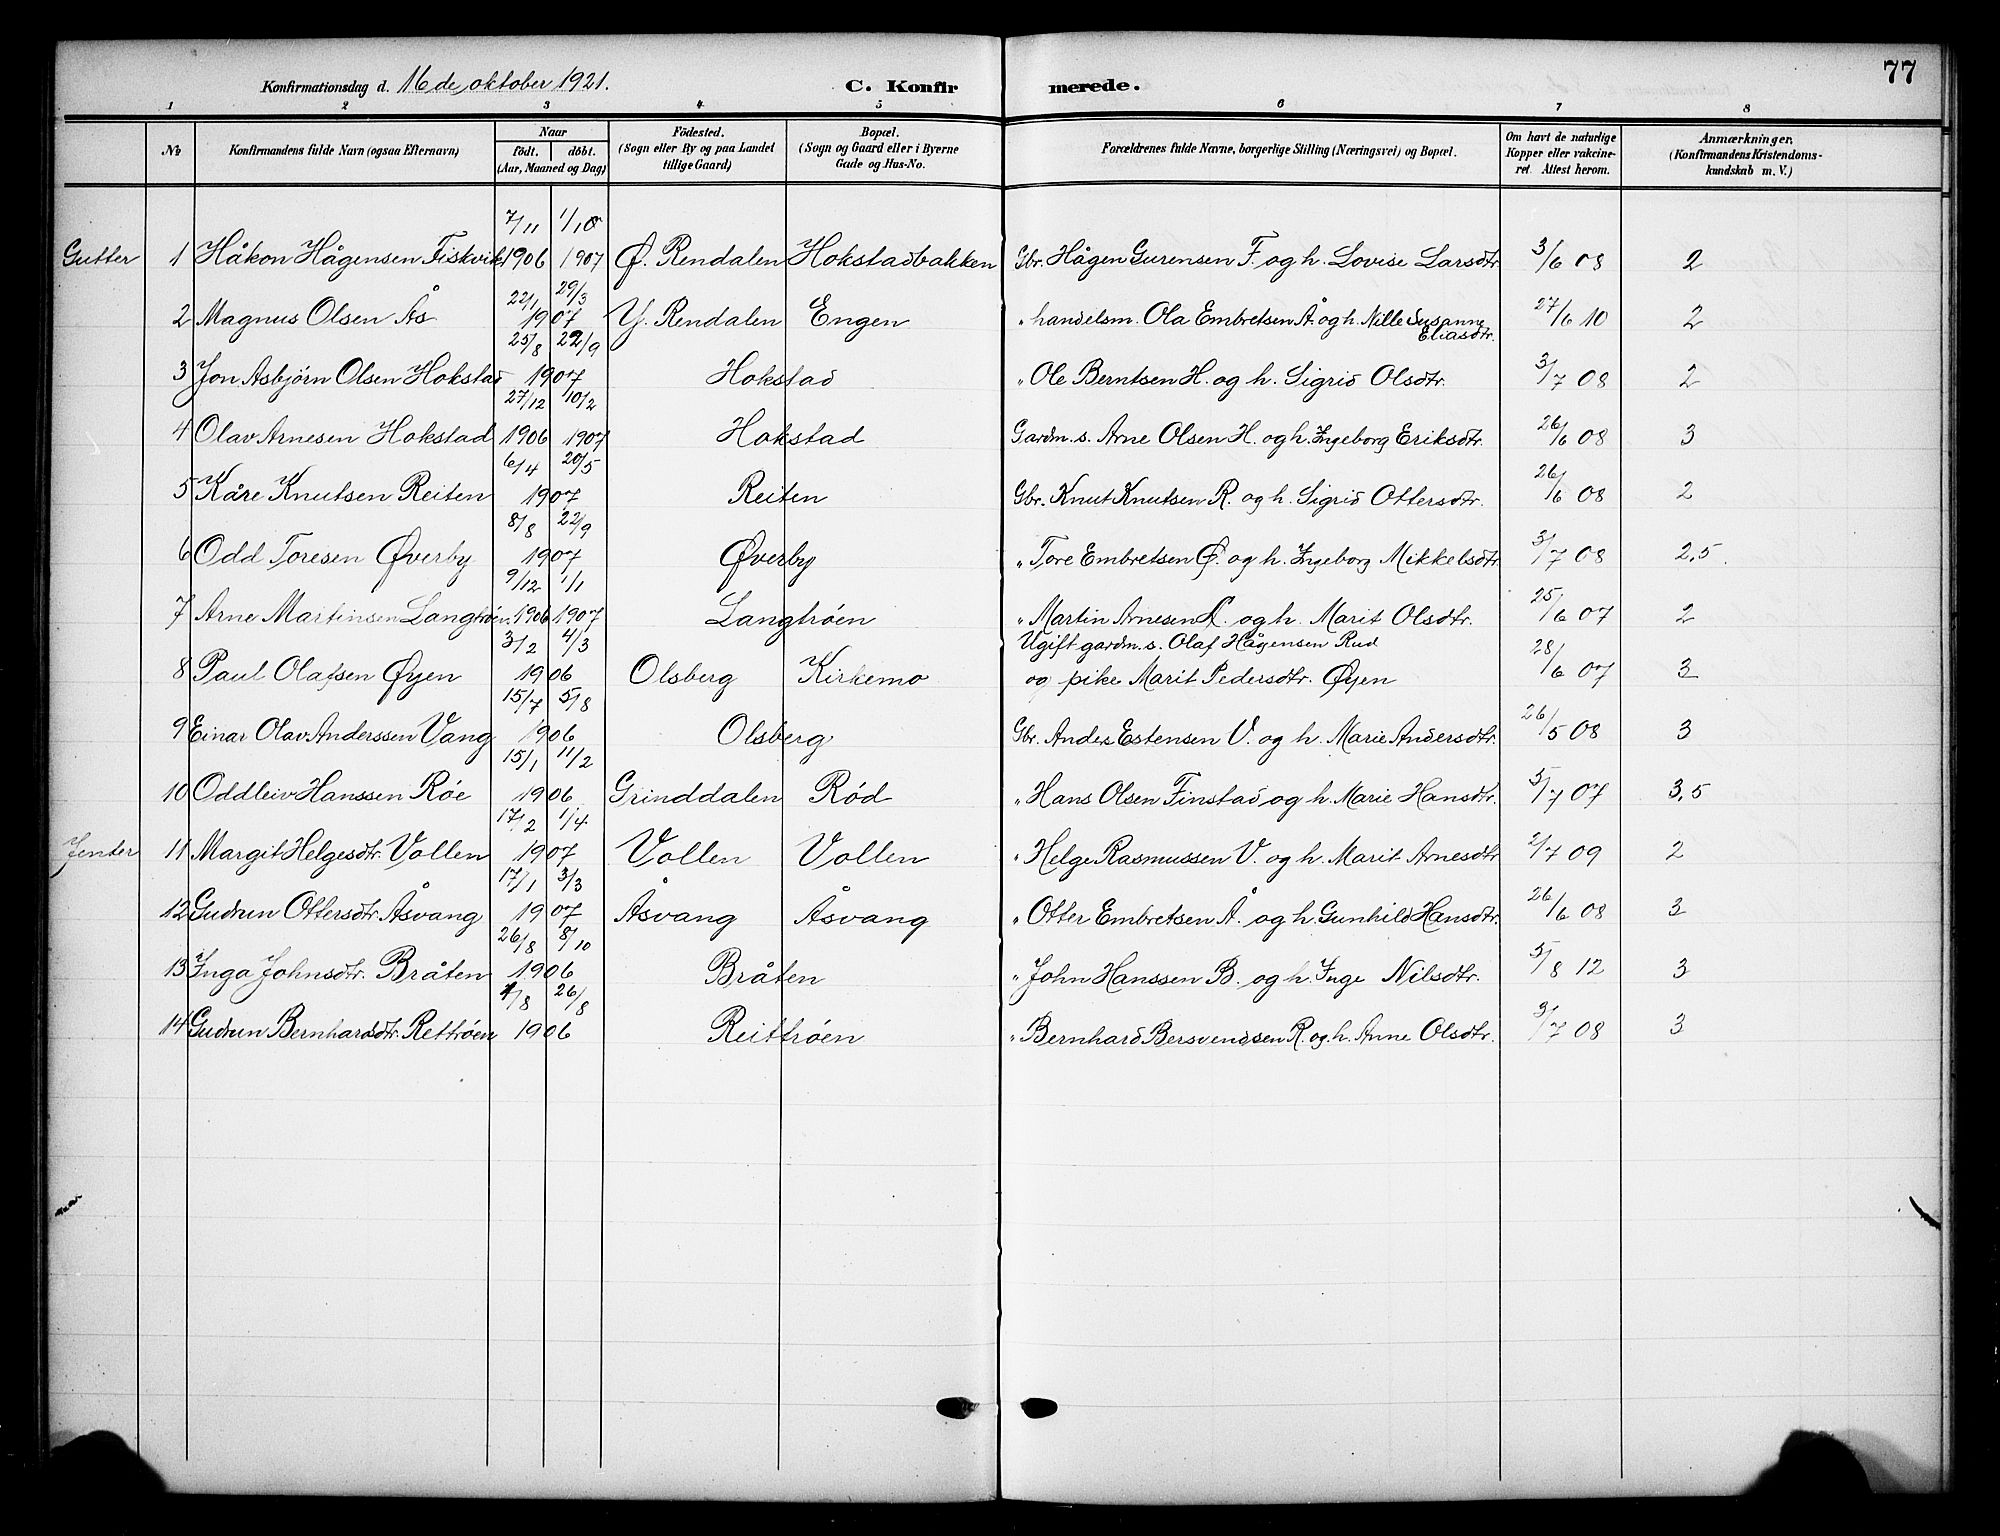 77
Konfirmationsdag d. 16de oktober 1921. C. Konfirmerede.
1 2 3 4 5 6 7 8
No Konfirmandens fulde Navn (ogsaa Efternavn) Naar födt. döbt. (Aar, Maaned og Dag) Födested. (Sogn eller By og paa Landet tillige Gaard) Bopæl. (Sogn og Gaard eller i Byerne Gade og Hus-No. Forældrenes fulde Navne, borgerlige Stilling (Næringsvei) og Bopæl. Om havt de naturlige Kopper eller vakcineret. Attest herom. Anmærkninger. (Konfirmandens Kristendomskundskab m. V.)
Gutter 1 Håkon Hågensen Fiskvik 7/11 1906 1/10 1907 Ø. Rendalen Hokstadbakken Gbr. Hågen Gurensen F. og h. Lovise Larsdtr 3/6 08 2
2 Magnus Olsen Ås 22/1 29/3 1907 Y. Rendalen Engen " handelsm. Ola Embretsen Å. og h. Nille Susanne Eliasdtr. 27/6 10 2
3 Jon Asbjörn Olsen Hokstad 25/8 22/9 1907 Hokstad " Ole Berntsen H. og h. Sigrid Olsdtr. 3/7 08 2
4 Olav Arnesen Hokstad 27/12 1906 10/2 1907 Hokstad Gardm. s. Arne Olsen H. og h. Ingeborg Eriksdtr. 26/6 08 3
5 Kåre Knutsen Reiten 6/4 20/5 1907 Reiten Gbr. Knut Knutsen R. og h. Sigrid Ottersdtr. 26/6 08 2
6 Odd Toresen Øverby 8/8 22/9 1907 Øverby " Tore Embretsen Ø. og h. Ingeborg Mikkelsdtr. 3/7 08 2,5
7 Arne Martinsen Langtröen 9/12 1906 1/1 1907 Langtröen " Martin Arnesen L. og h. Marit Olsdtr. 25/6 07 2
8 Paul Olafsen Øyen 3/2 4/3 1906 Olsberg Kirkemo Ugift gardm. s. Olaf Hågensen Rud og pike Marit Pedersdtr. Øyen 28/6 07 3
9 Einar Olav Anderssen Vang 15/7 5/8 1906 Olsberg Gbr. Anders Estensen V. og h. Marie Andersdtr. 26/5 08 3
10 Oddleiv Hanssen Röe 15/1 11/2 1906 Grinddalen Röd " Hans Olsen Finstad og h. Marie Hansdtr. 5/7 07 3,5
Jenter 11 Margit Helgesdtr. Vollen 17/2 1/4 1907 Vollen Vollen " Helge Rasmussen V. og h. Marit Arnesdtr 2/7 09 2
12 Gudrun Ottersdtr. Åsvang 17/1 3/3 1907 Åsvang Åsvang " Otter Embretsen Å. og h. Gunhild Hansdtr. 26/6 08 3
13 Inga Johnsdtr. Bråten 26/8 8/10 1906 Bråten " John Hanssen B. og h. Inge Nilsdtr. 5/8 12 3
14 Gudrun Bernhardsdtr. Rettröen /8 26/8 1906 Reittröen " Bernhard Bersvendsen R. og h. Anne Olsdtr. 3/7 08 3